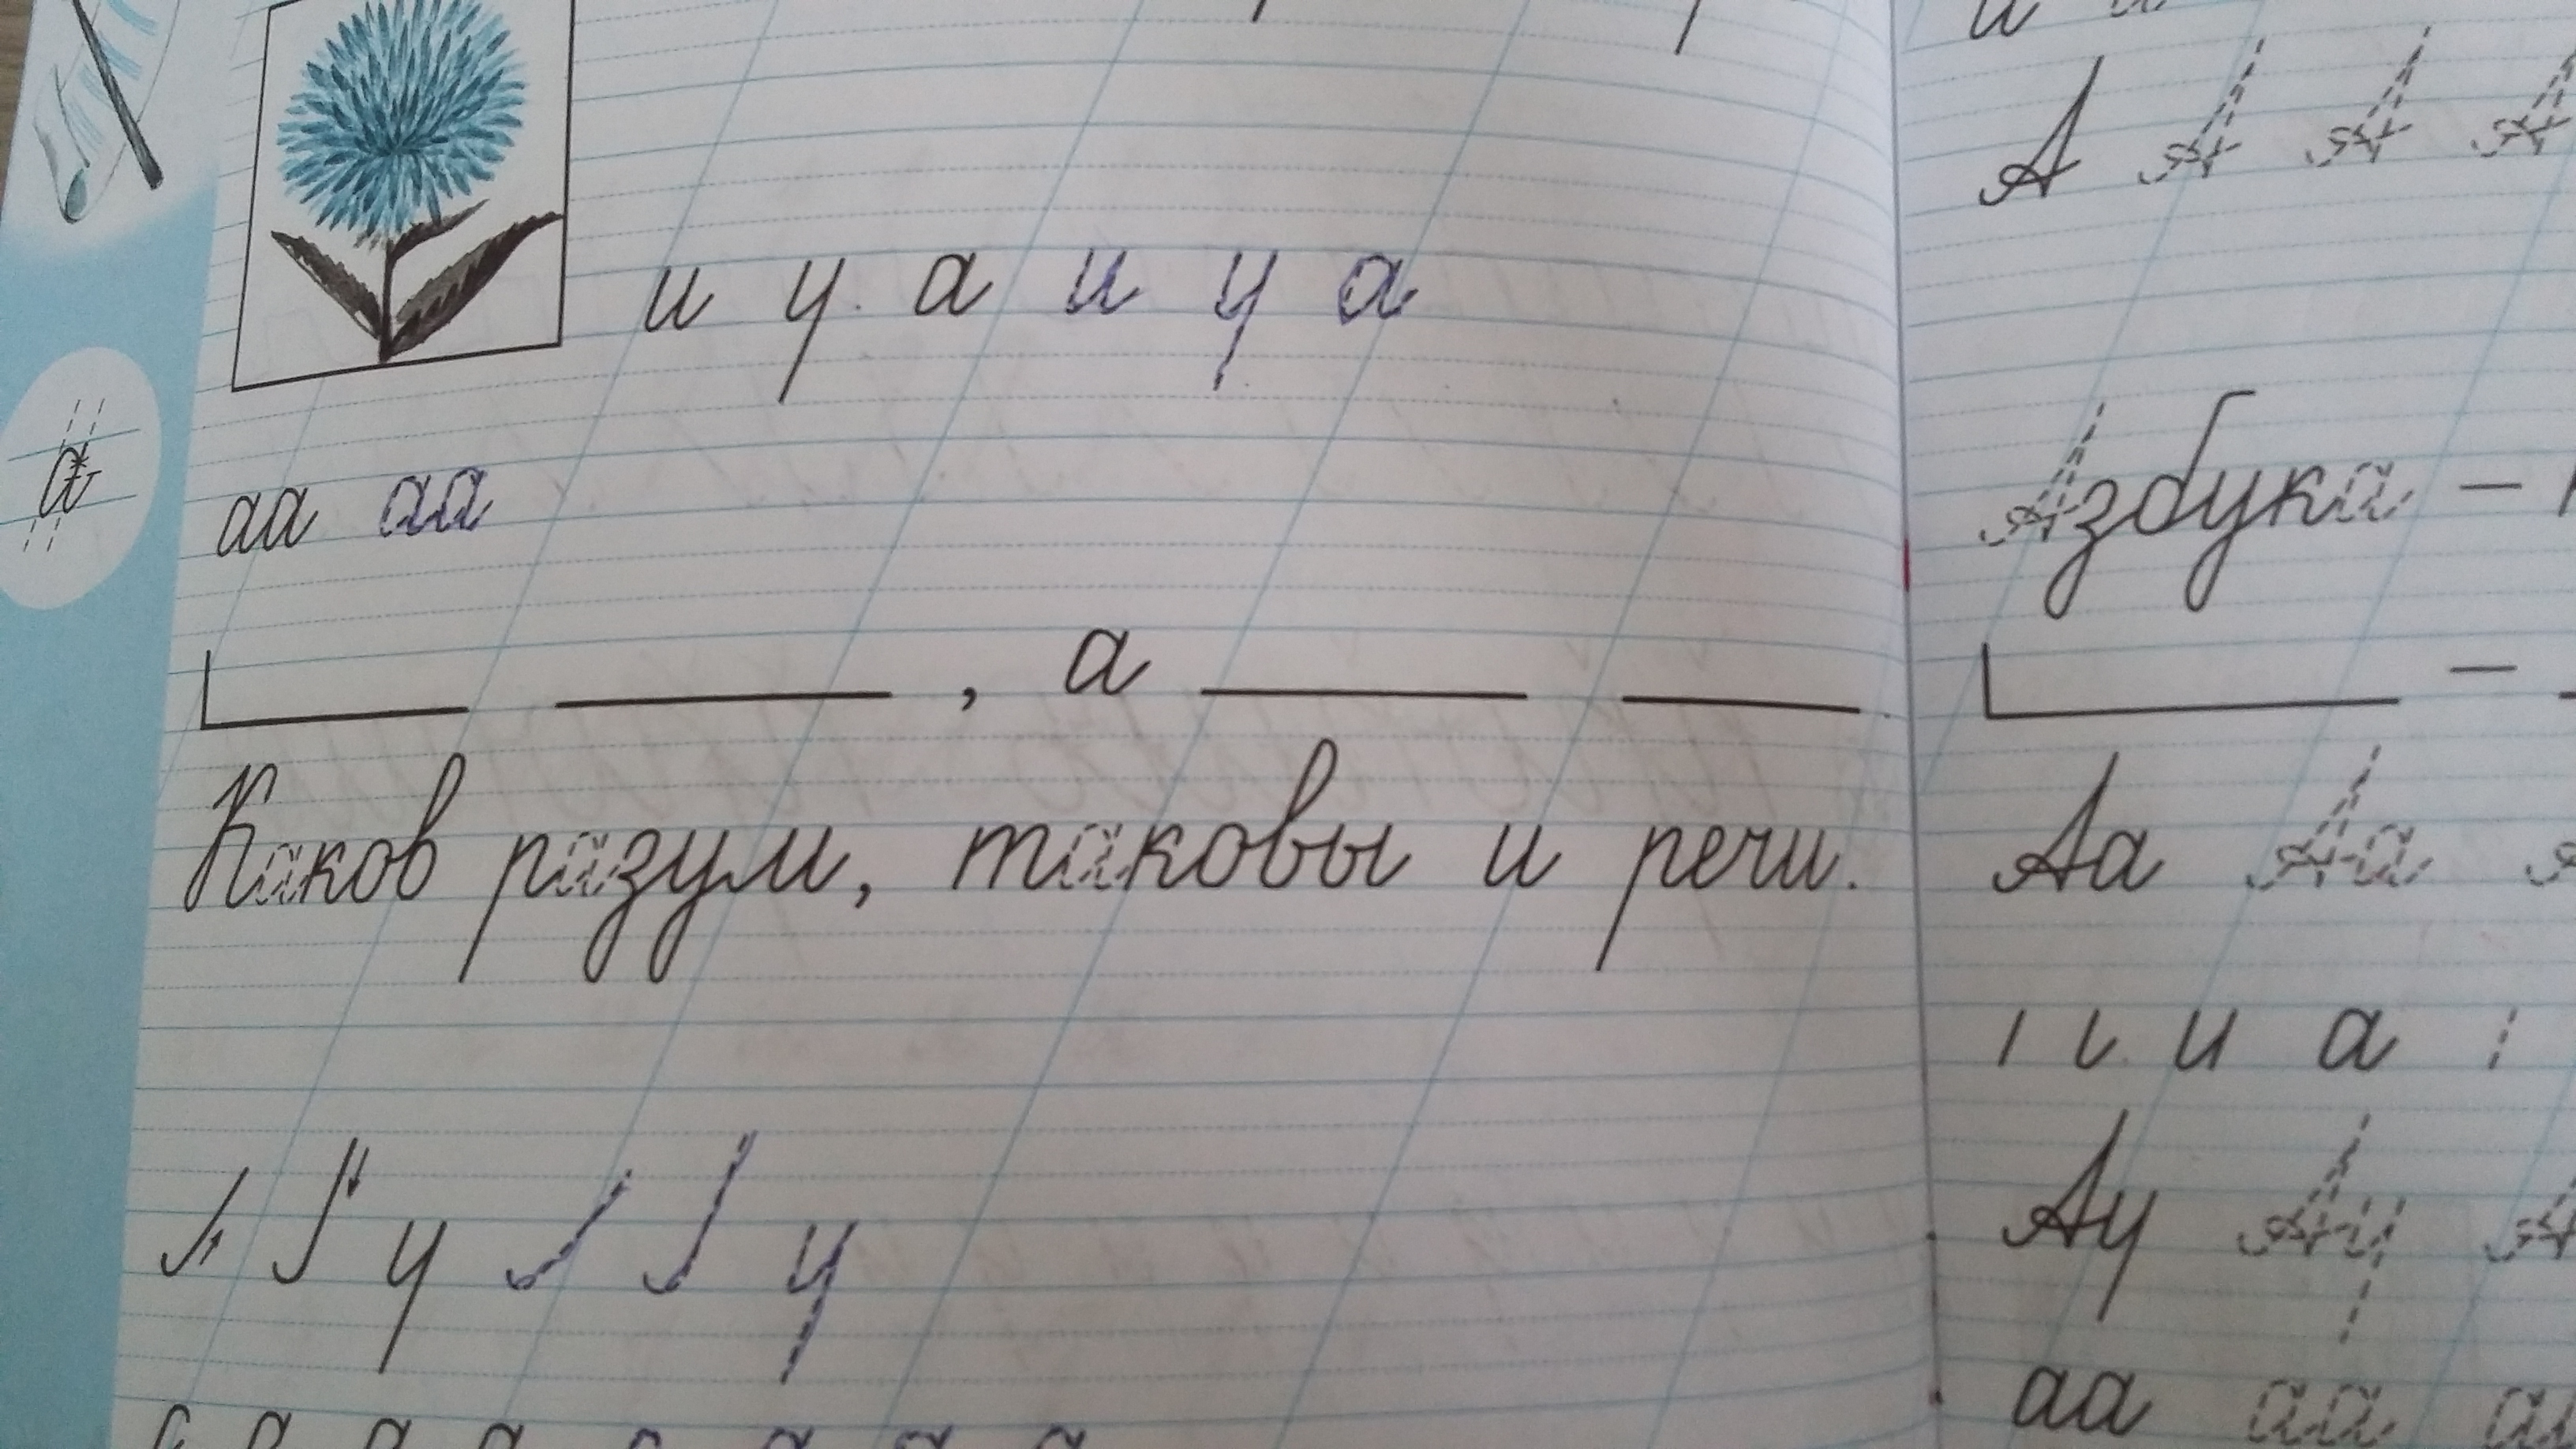 и у а и у а
а
аа аа
, а
Каков разум, таковы и речи.
у у
А А А А
Азбука —
—
Аа Аа
и а
Ау Ау
аа аа